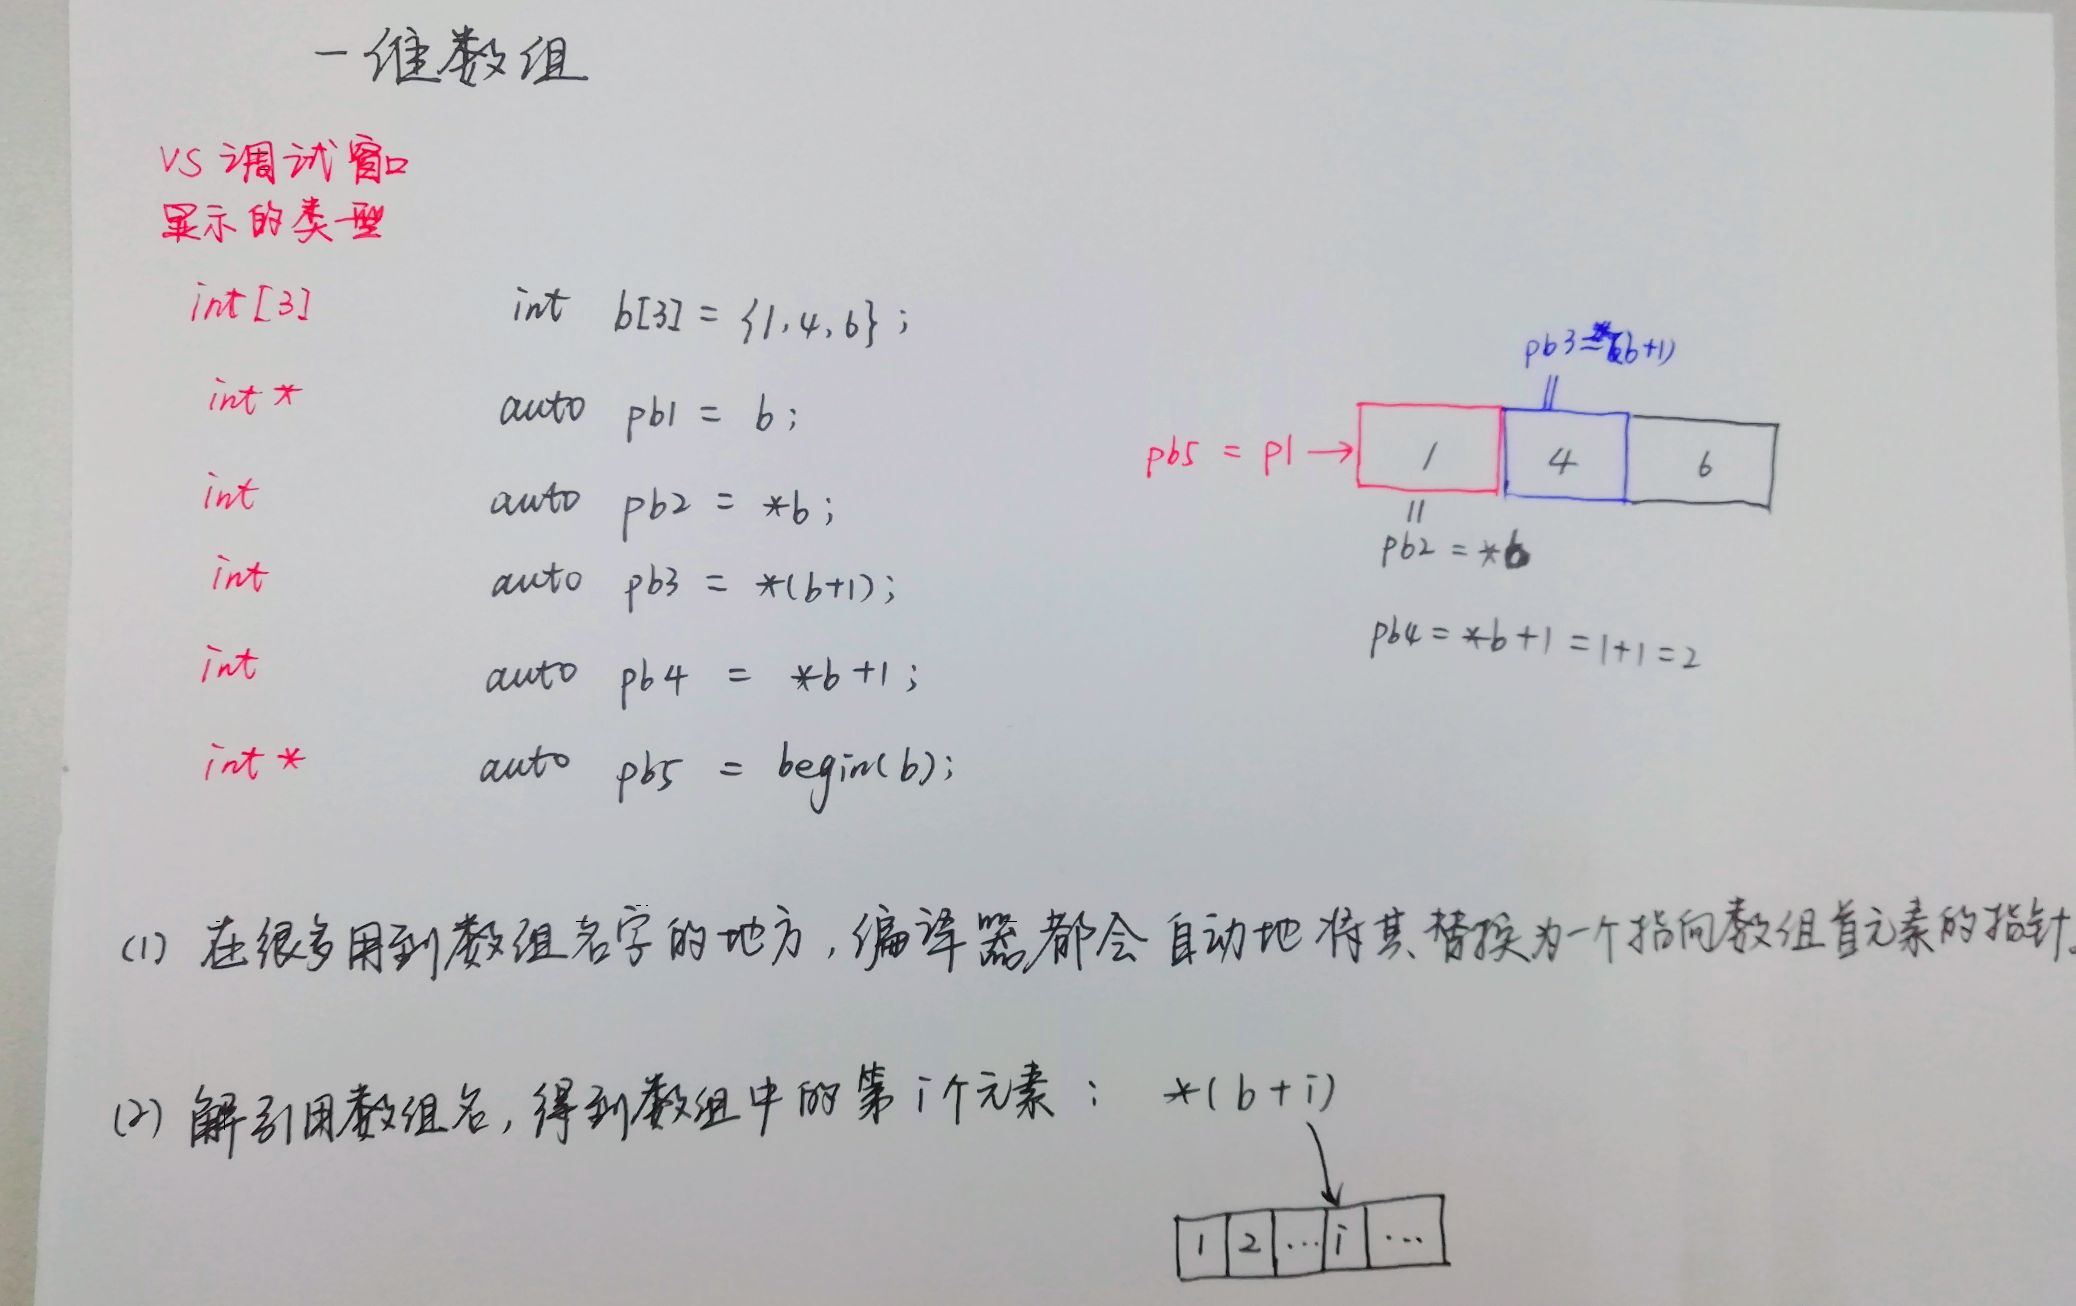 一维数组
VS 调试窗口
显示的类型
int[3] int b[3] = {1,4,6};
int * auto pb1 = b;
int auto pb2 = *b;
int auto pb3 = *(b+1);
int auto pb4 = *b+1;
int * auto pb5 = begin(b);
pb3=*(b+1)
pb5 = p1 → 1 4 6
pb2 = *b
pb4 = *b+1 = 1+1=2
(1) 在很多用到数组名字的地方,编译器都会自动地将其替换为一个指向数组首元素的指针。
(2) 解引用数组名,得到数组中的第i个元素: *(b+i)
1 2 ... i ...